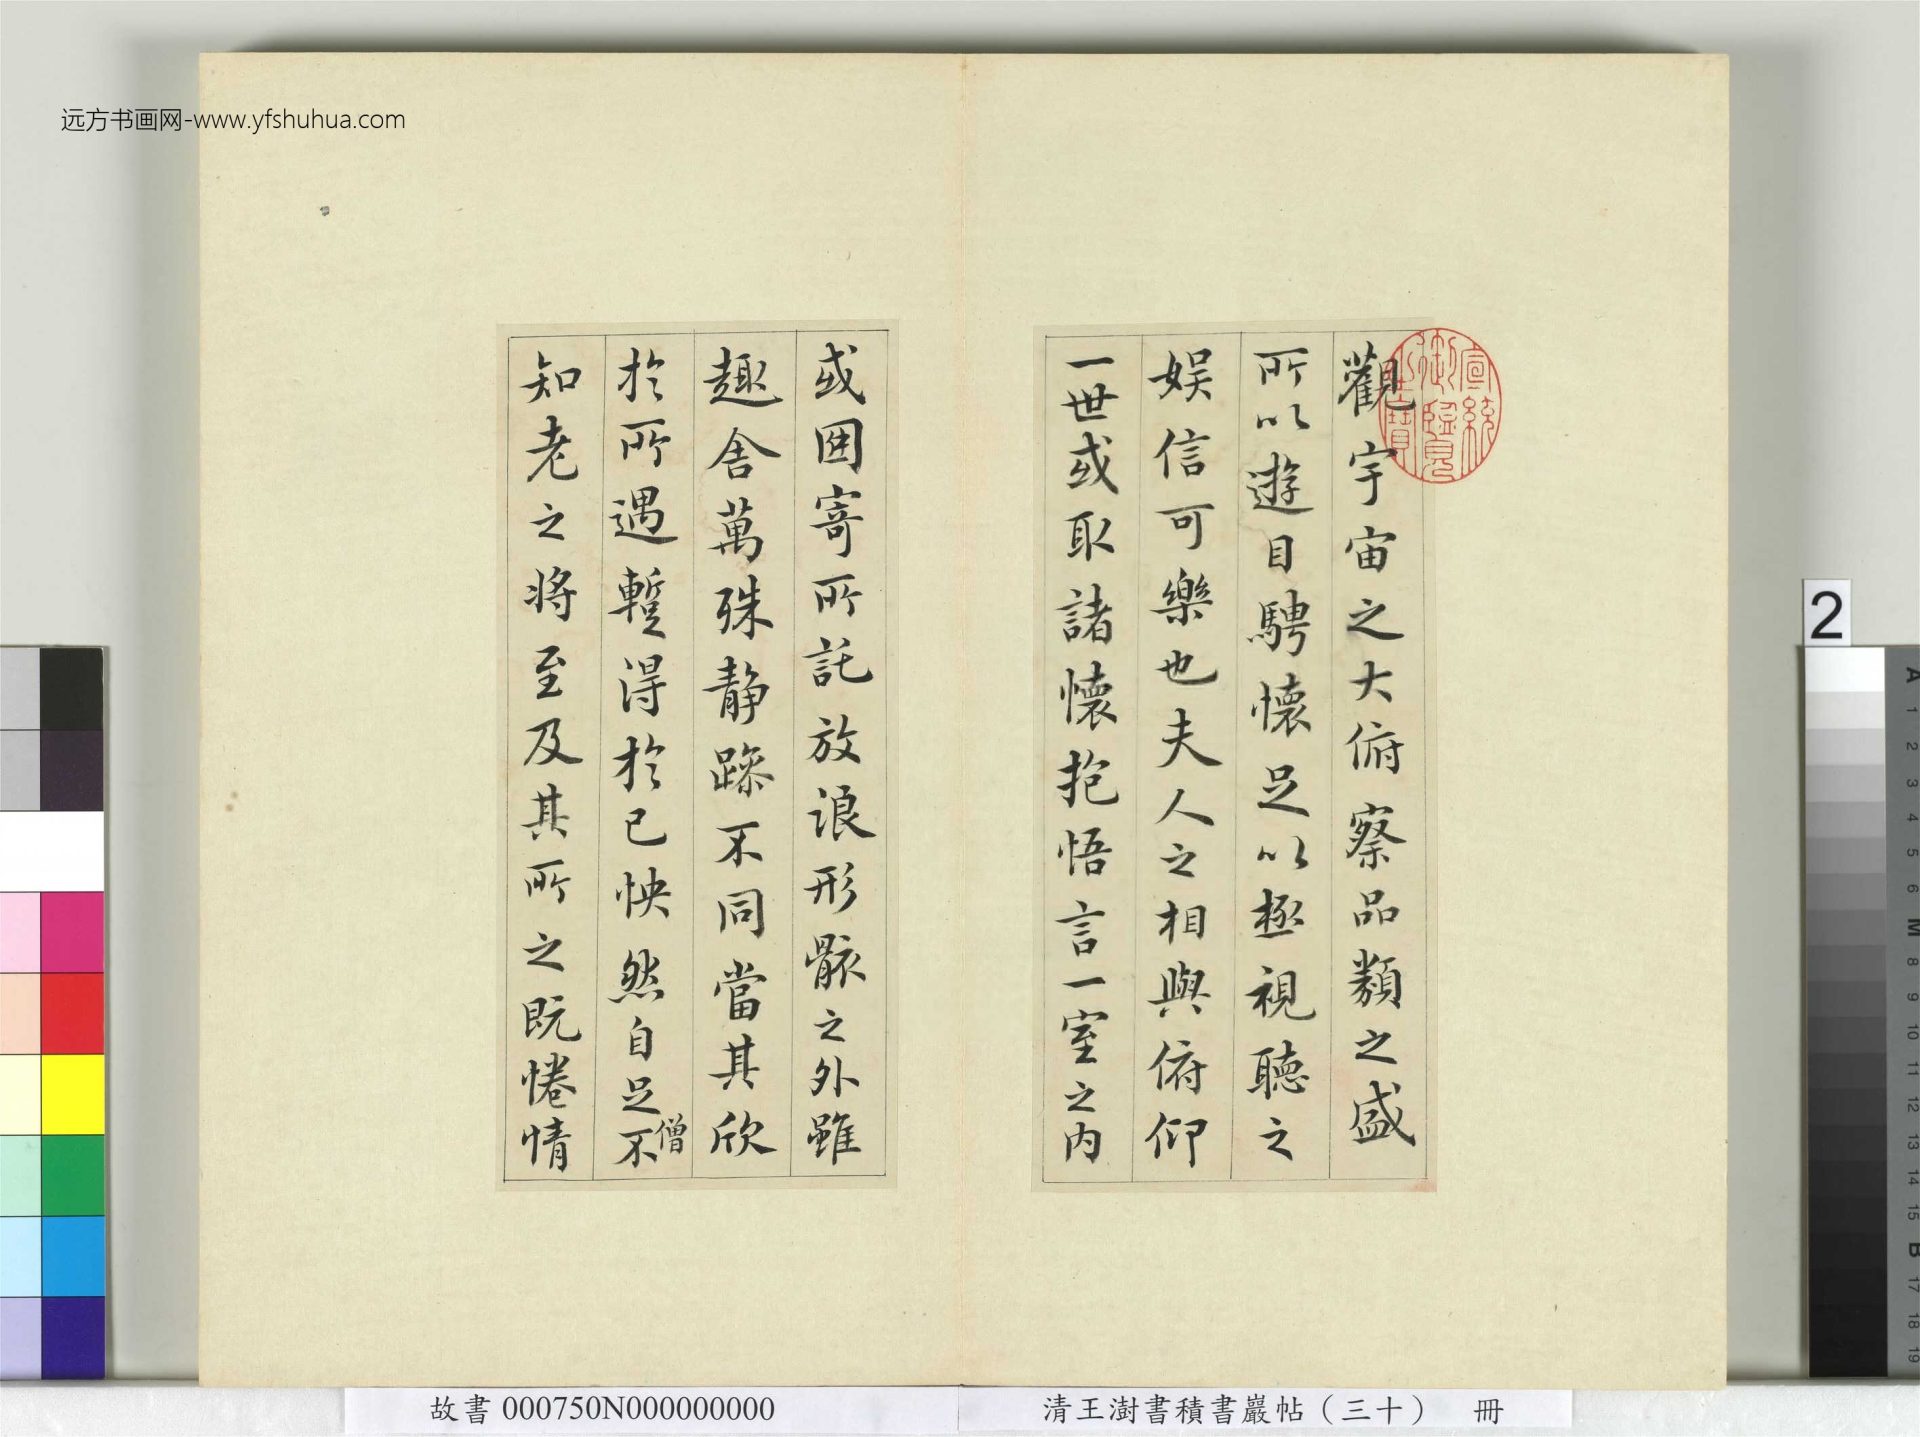 远方书画网-www.yfshuhua.com
宣統御覽之寶
觀宇宙之大俯察品類之盛
所以遊目騁懷足以極視聽之
娛信可樂也夫人之相與俯仰
一世或取諸懷抱悟言一室之內
或因寄所託放浪形骸之外雖
趣舍萬殊靜躁不同當其欣
於所遇蹔得於己怏然自足不
僧
知老之將至及其所之既惓情
2
故書 000750N000000000
清王澍書積書巖帖（三十） 冊
A 1 2 3 4 5 6 M 8 9 10 11 12 13 14 15 B 17 18 19